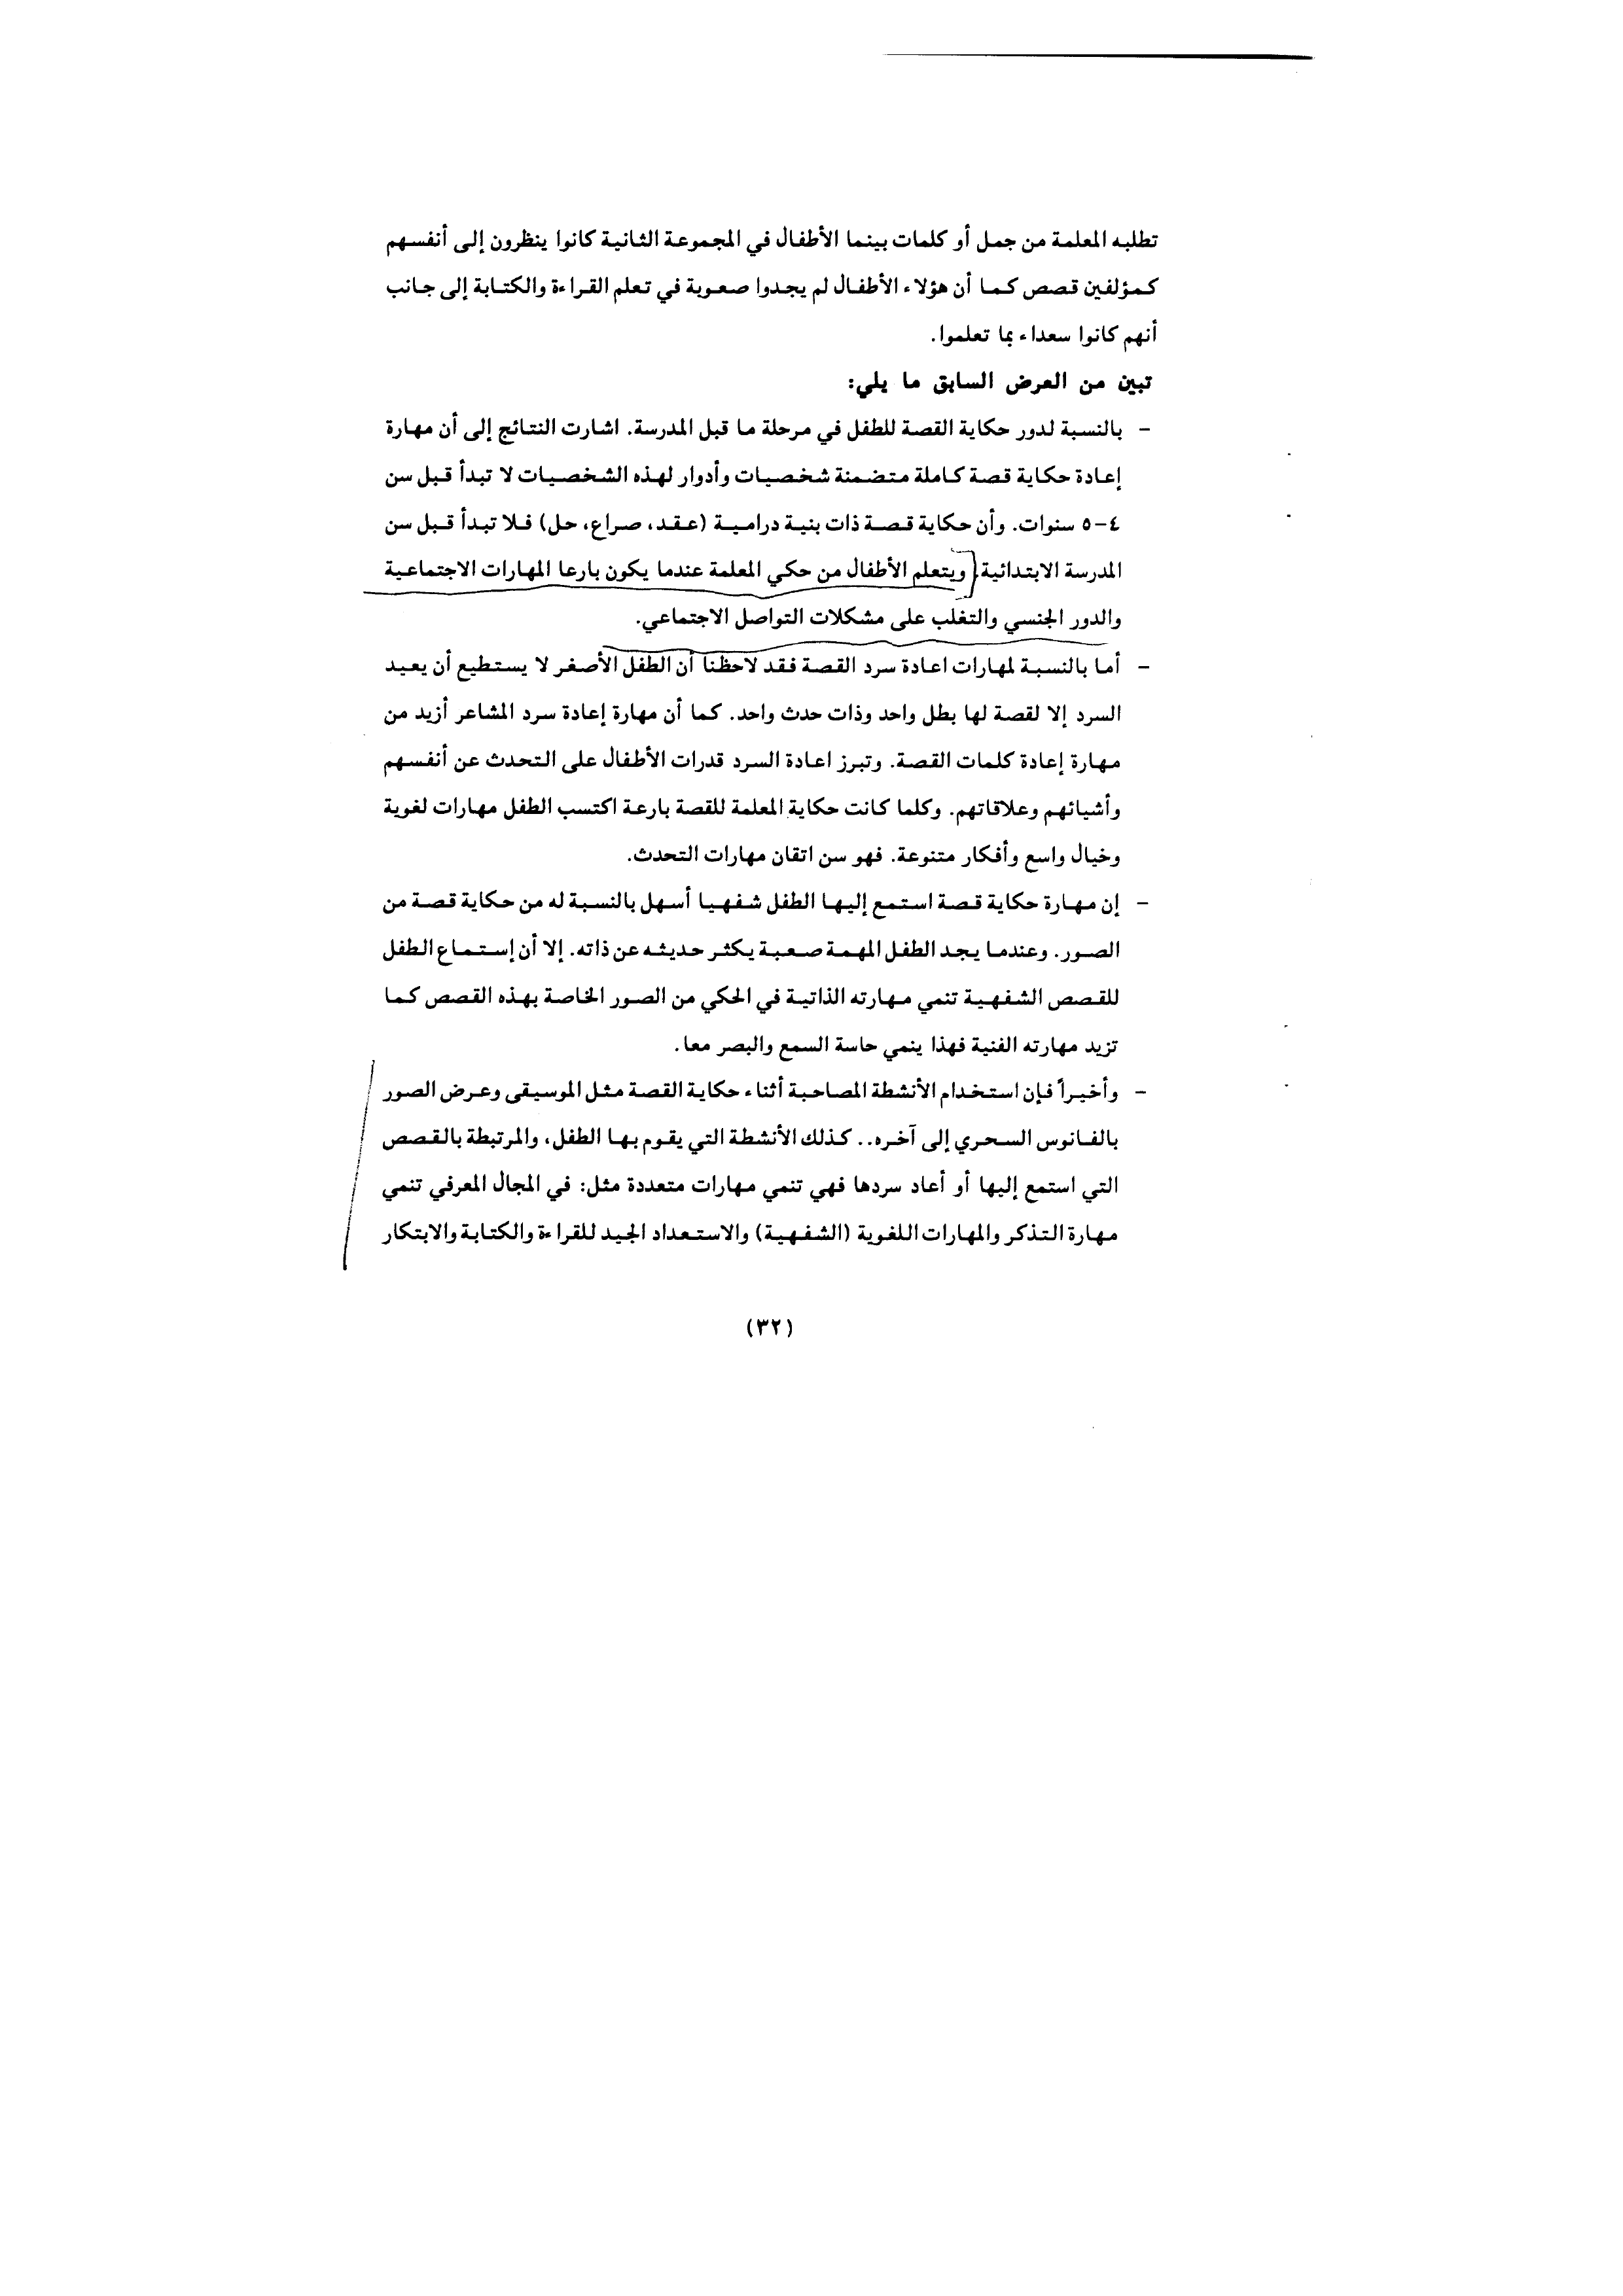 تطلبه المعلمة من جمل أو كلمات بينما الأطفال في المجموعة الثانية كانوا ينظرون إلى أنفسهم
كمؤلفين قصص كما أن هؤلاء الأطفال لم يجدوا صعوبة في تعلم القراءة والكتابة إلى جانب
أنهم كانوا سعداء بما تعلموا.
تبين من العرض السابق ما يلي:
- بالنسبة لدور حكاية القصة للطفل في مرحلة ما قبل المدرسة. اشارت النتائج إلى أن مهارة
إعادة حكاية قصة كاملة متضمنة شخصيات وأدوار لهذه الشخصيات لا تبدأ قبل سن
٤-٥ سنوات. وأن حكاية قصة ذات بنية درامية (عقد، صراع، حل) فلا تبدأ قبل سن
المدرسة الابتدائية. ويتعلم الأطفال من حكي المعلمة عندما يكون بارعا المهارات الاجتماعية
والدور الجنسي والتغلب على مشكلات التواصل الاجتماعي.
- أما بالنسبة لمهارات اعادة سرد القصة فقد لاحظنا أن الطفل الأصغر لا يستطيع أن يعيد
السرد إلا لقصة لها بطل واحد وذات حدث واحد. كما أن مهارة إعادة سرد المشاعر أزيد من
مهارة إعادة كلمات القصة. وتبرز اعادة السرد قدرات الأطفال على التحدث عن أنفسهم
وأشيائهم وعلاقاتهم. وكلما كانت حكاية المعلمة للقصة بارعة اكتسب الطفل مهارات لغوية
وخيال واسع وأفكار متنوعة. فهو سن اتقان مهارات التحدث.
- إن مهارة حكاية قصة استمع إليها الطفل شفهيا أسهل بالنسبة له من حكاية قصة من
الصور. وعندما يجد الطفل المهمة صعبة يكثر حديثه عن ذاته. إلا أن إستماع الطفل
للقصص الشفهية تنمي مهارته الذاتية في الحكي من الصور الخاصة بهذه القصص كما
تزيد مهارته الفنية فهذا ينمي حاسة السمع والبصر معا.
- وأخيراً فإن استخدام الأنشطة المصاحبة أثناء حكاية القصة مثل الموسيقى وعرض الصور
بالفانوس السحري إلى آخره.. كذلك الأنشطة التي يقوم بها الطفل، والمرتبطة بالقصص
التي استمع إليها أو أعاد سردها فهي تنمي مهارات متعددة مثل: في المجال المعرفي تنمي
مهارة التذكر والمهارات اللغوية (الشفهية) والاستعداد الجيد للقراءة والكتابة والابتكار
(٣٢)